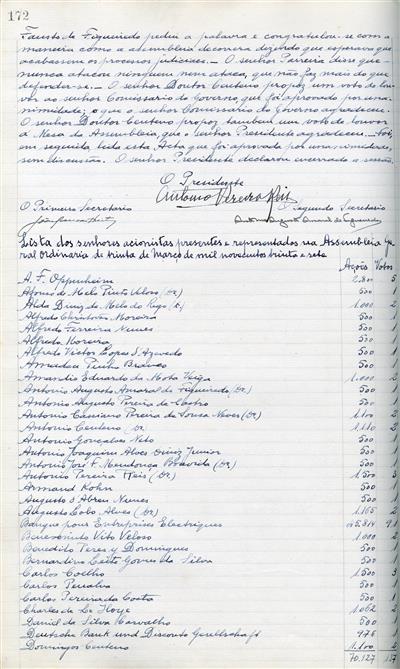 172
Fausto de Figueiredo pediu a palavra e congratulou-se com a
maneira como a assembleia decorrera dizendo que esperava que
acabassem os processos judiciaes._ O senhor Parreira disse que
nunca atacou ninguem nem ataca, que não faz mais do que
defender-se._ O senhor Doutor Centeno propoz um voto de lou-
vor ao senhor Comissario do Governo, que foi aprovado por una-
nimidade; o que o senhor Comissario do Governo agradeceu.
O senhor Doutor Centeno propoz tambem um voto de louvor
á Mesa da Assembleia, que o Senhor Presidente agradeceu._ Foi,
em seguida, lida esta Acta que foi aprovada por unanimidade,
sem discussão. O senhor Presidente declarou encerrada a sessão.
O Presidente
Antonio Pereira Reis
O Primeiro Secretario
Segundo Secretario
Lista dos senhores acionistas presentes e representados na Assembleia ge-
ral Ordinaria de trinta de Março de mil novecentos trinta e sete
Ações Votos
A. F. Oppenheim 2.800 5
Afonso de Melo Pinto Veloso (Dr) 500 1
Alda Diniz de Melo do Rego 1.000 2
Alfredo Christovão Moreira 500 1
Alfredo Ferreira Nunes 500 1
Alfredo Moreira 500 1
Alfredo Victor Lopes d'Azevedo 500 1
Amadeu Pinho Branco 500 1
Amandio Eduardo da Mota Veiga 1.000 2
Antonio Augusto Amaral de Figueiredo (Dr) 500 1
Antonio Augusto Pereira de Castro 500 1
Antonio Caneiro Pereira de Sousa Neves (Dr) 1.100 2
Antonio Centeno (Dr) 1.110 2
Antonio Gonçalves Neto 500 1
Antonio Joaquim Alves Diniz Junior 500 1
Antonio José F. Mendonça (Dr) 500 1
Antonio Pereira Reis (Dr) 1.500 3
Armand Kohn 500 1
Augusto d'Abreu Nunes 500 1
Augusto Lobo Alves (Dr) 1.165 2
Banque pour Entreprises Electriques 45.814 91
Benevenuto Vito Veloso 1.000 2
Benedito Peres y Domingues 500 1
Bernardino Leite Gomes da Silva 500 1
Carlos Coelho 1.500 3
Carlos Peralva 500 1
Carlos Pereira da Costa 500 1
Charles de La Hoye 1.062 2
Daniel da Silva Carvalho 500 1
Deutsche Bank und Disconto Gesellschaft 976 1
Domingos Centeno 1.100 2
70.127 137